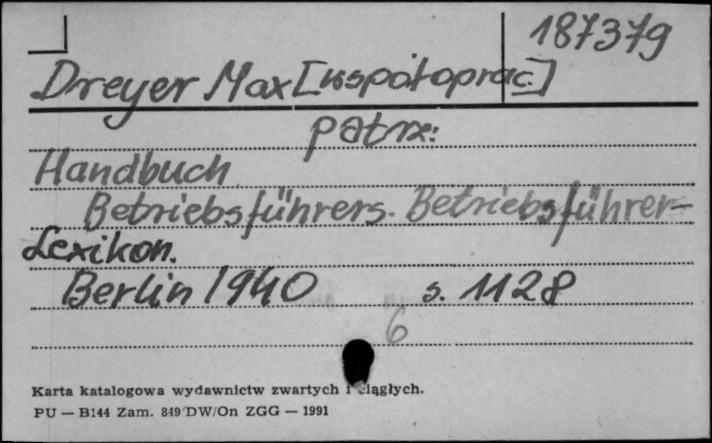 187379
Dreyer Max [współoprac.]
patrz:
Handbuch
Betriebsführers. Betriebsführer-
Lexikon.
Berlin 1940 s. 1128
6
Karta katalogowa wydawnictw zwartych i ciągłych.
PU — B144 Zam. 849/DW/On ZGG — 1991